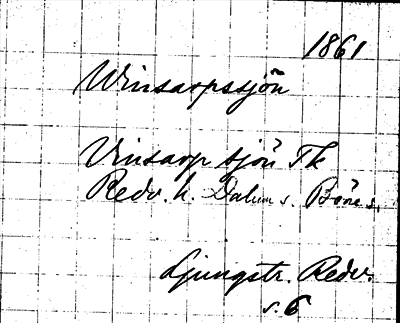 1861
Winsarpssjön
Vinsarp sjön Tk
Redv. h. Dalum s. Böne s.
Ljungstr. Redv.
s. 6